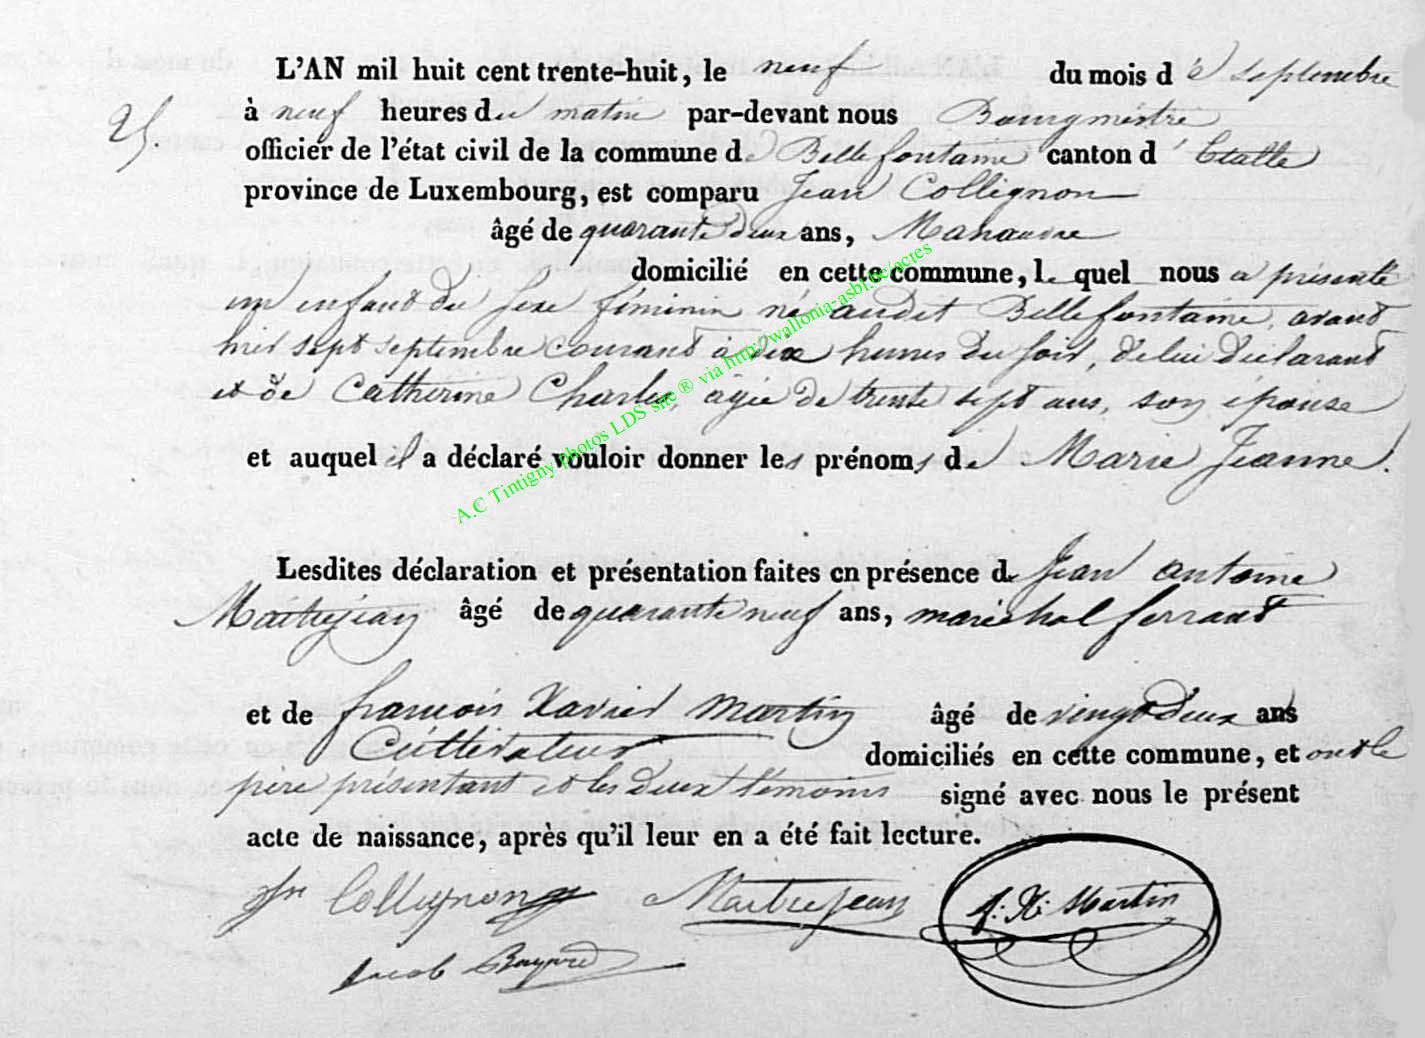 L'AN mil huit cent trente-huit, le neuf du mois de septembre
25.
à neuf heures du matin par-devant nous Bourgmestre
officier de l'état civil de la commune de Bellefontaine canton d'Etalle
province de Luxembourg, est comparu Jean Collignon
âgé de quarante deux ans, Manœuvre
domicilié en cette commune, le quel nous a présenté
un enfant du sexe féminin né audit Bellefontaine, avant
hier sept septembre courant à dix heures du soir, de lui déclarant
et de Catherine Charles, agée de trente sept ans, son épouse
et auquel il a déclaré vouloir donner les prénoms de Marie Jeanne.
A.C Tintigny photos LDS site ® via http://wallonia-asbl.be/actes
Lesdites déclaration et présentation faites en présence de Jean antoine
Maitrejean âgé de quarante neuf ans, maréchal ferrant
et de françois Xavier Martin âgé de vingt deux ans
Cultivateur domiciliés en cette commune, et ont le
père présentant et les deux témoins signé avec nous le présent
acte de naissance, après qu'il leur en a été fait lecture.
Jn Collignon Maitrejean f. X. Martin
Jacob